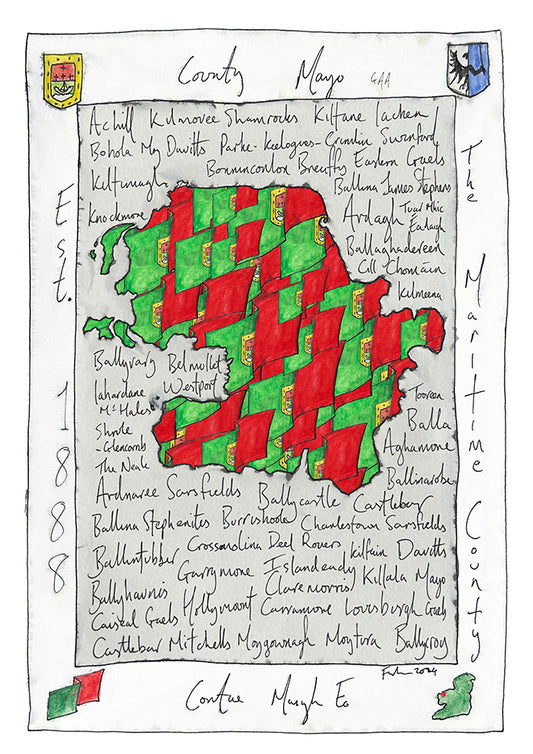 County Mayo GAA
Est. 1888
The Maritime County
Achill Kilmovee Shamrocks Kiltane Lacken
Bohola Moy Davitts Parke-Keelogues-Crimlin Swinford
Bonniconlon Breaffy Eastern Gaels
Kiltimagh
Ballina James Stephens
Knockmore
Ardagh Tuar Mhic
Éadaigh
Ballaghadereen
Cill Chomáin
Kilmeena
Ballyvary Belmullet
Lahardane Westport
McHales
Shrule
Glencorrib
The Neale
Tooreen
Balla
Aghamore
Ballinrobe
Ardnaree Sarsfields Ballycastle Castlebar
Ballina Stephenites Burrishoole Charlestown Sarsfields
Ballintubber Crossmolina Deel Rovers Kilfian Davitts
Garrymore Islandeady Killala Mayo
Ballyhaunis Hollymount Claremorris
Caiseal Gaels Carramore Louisburgh Gaels
Castlebar Mitchells Moygownagh Moytura Ballycroy
2024
Contae Maigh Eo